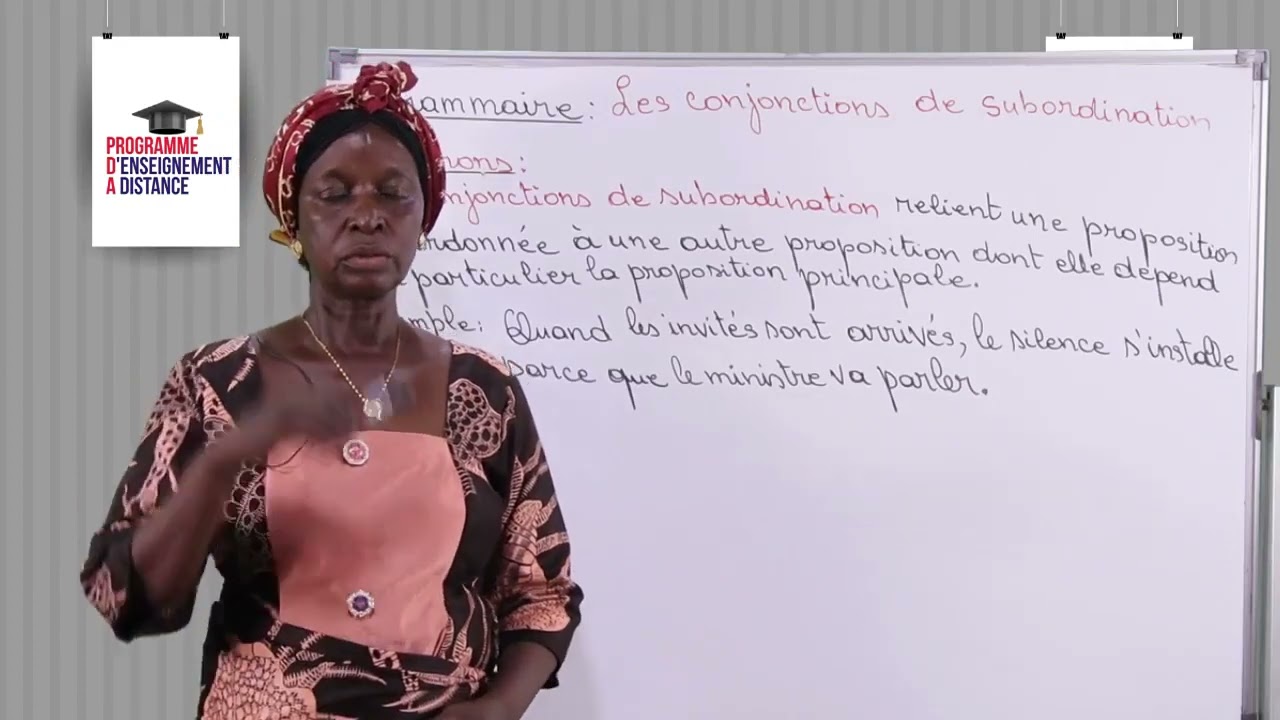 PROGRAMME
D'ENSEIGNEMENT
A DISTANCE
ammaire : Les conjonctions de subordination
rons :
njonctions de subordination relient une proposition
rdonnée à une autre proposition dont elle dépend
particulier la proposition principale.
mple : Quand les invités sont arrivés, le silence s'installe
parce que le ministre va parler.